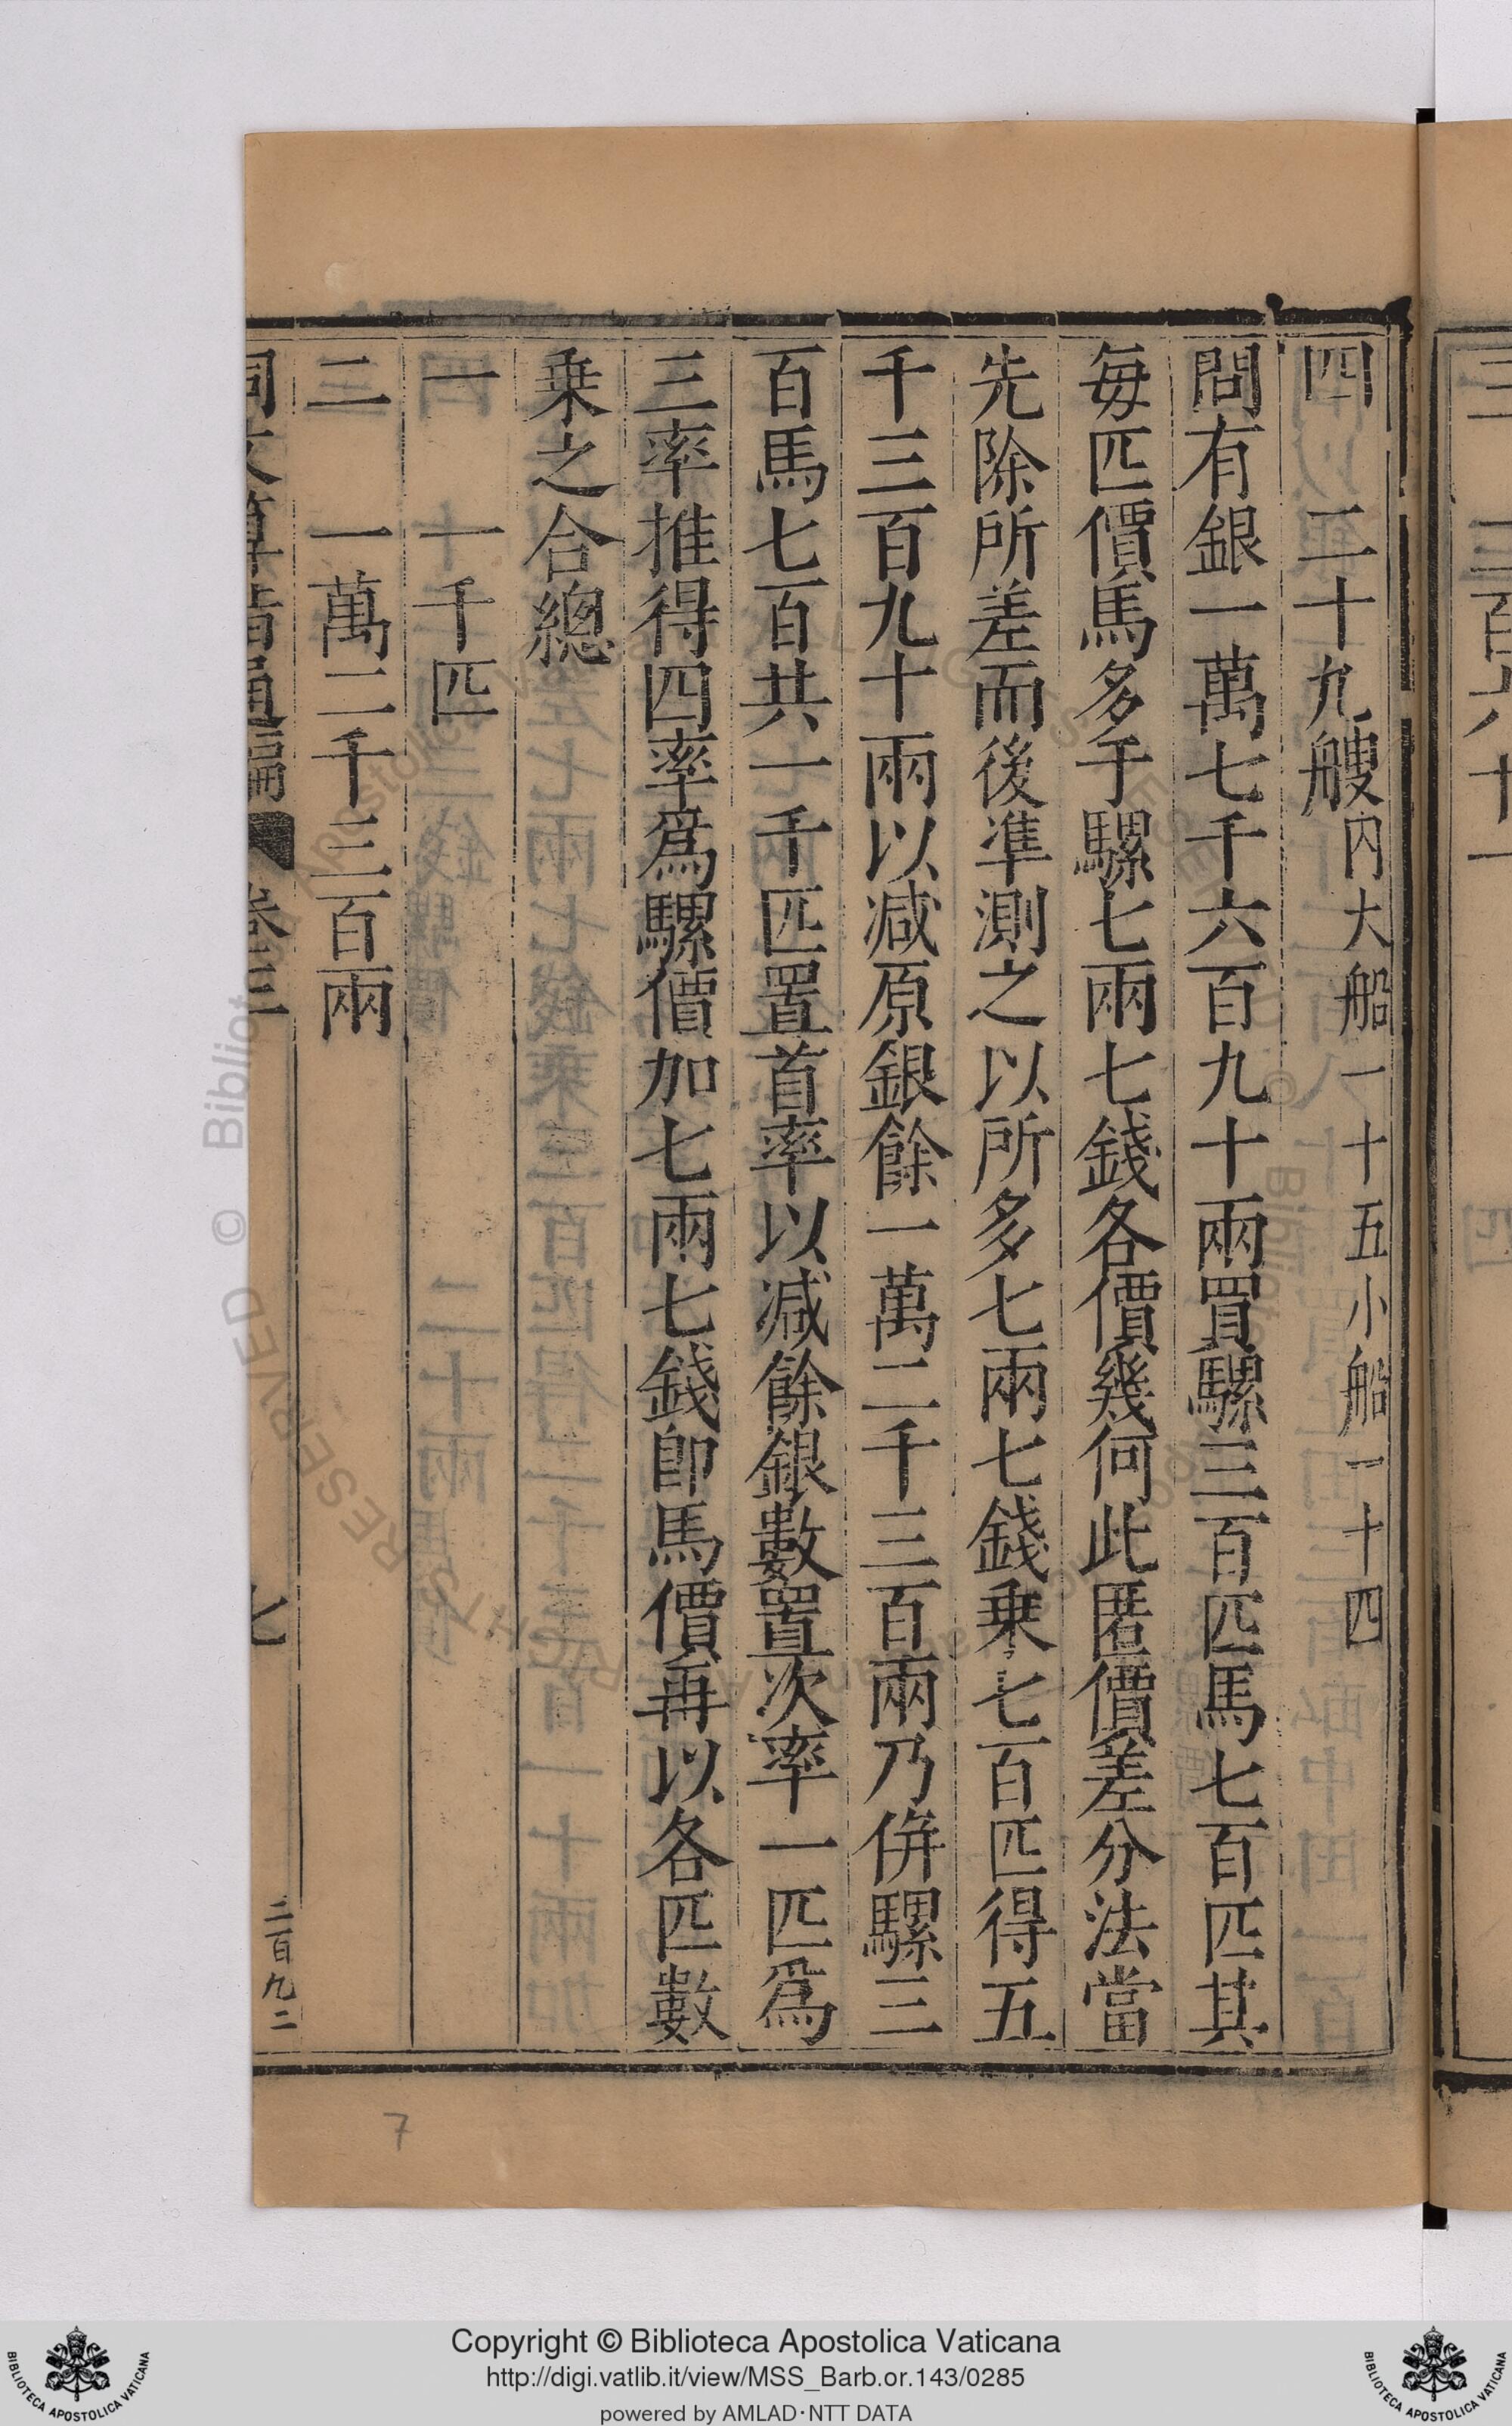 四　二十九艘內大船一十五小船一十四
問有銀一萬七千六百九十兩買騾三百匹馬七百匹其
每匹價馬多于騾七兩七錢各價幾何此匿價差分法當
先除所差而後準測之以所多七兩七錢乗七百匹得五
千三百九十兩以减原銀餘一萬二千三百兩乃併騾三
百馬七百共一千匹置首率以减餘銀數置次率一匹爲
三率推得四率爲騾價加七兩七錢卽馬價再以各匹數
乗之合總
一　一千匹
二　一萬二千三百兩
同文算指通編　卷三　七　二百九二
7
Copyright © Biblioteca Apostolica Vaticana
http://digi.vatlib.it/view/MSS_Barb.or.143/0285
powered by AMLAD·NTT DATA
BIBLIOTECA APOSTOLICA VATICANA
BIBLIOTECA APOSTOLICA VATICANA